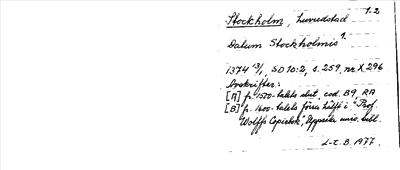 1.2
Stockholm, huvudstad
Datum Stockholmis 1.
1374 13/1, SD 10:2, s. 259, nr X 296
Avskrifter:
[A] fr. 1570-talets slut, cod. B9, RA
[B] fr. 1600-talets förra hälft i "Prof.
Wolffs Copiebok", Uppsala univ. bibl.
L-E. B. 1977.